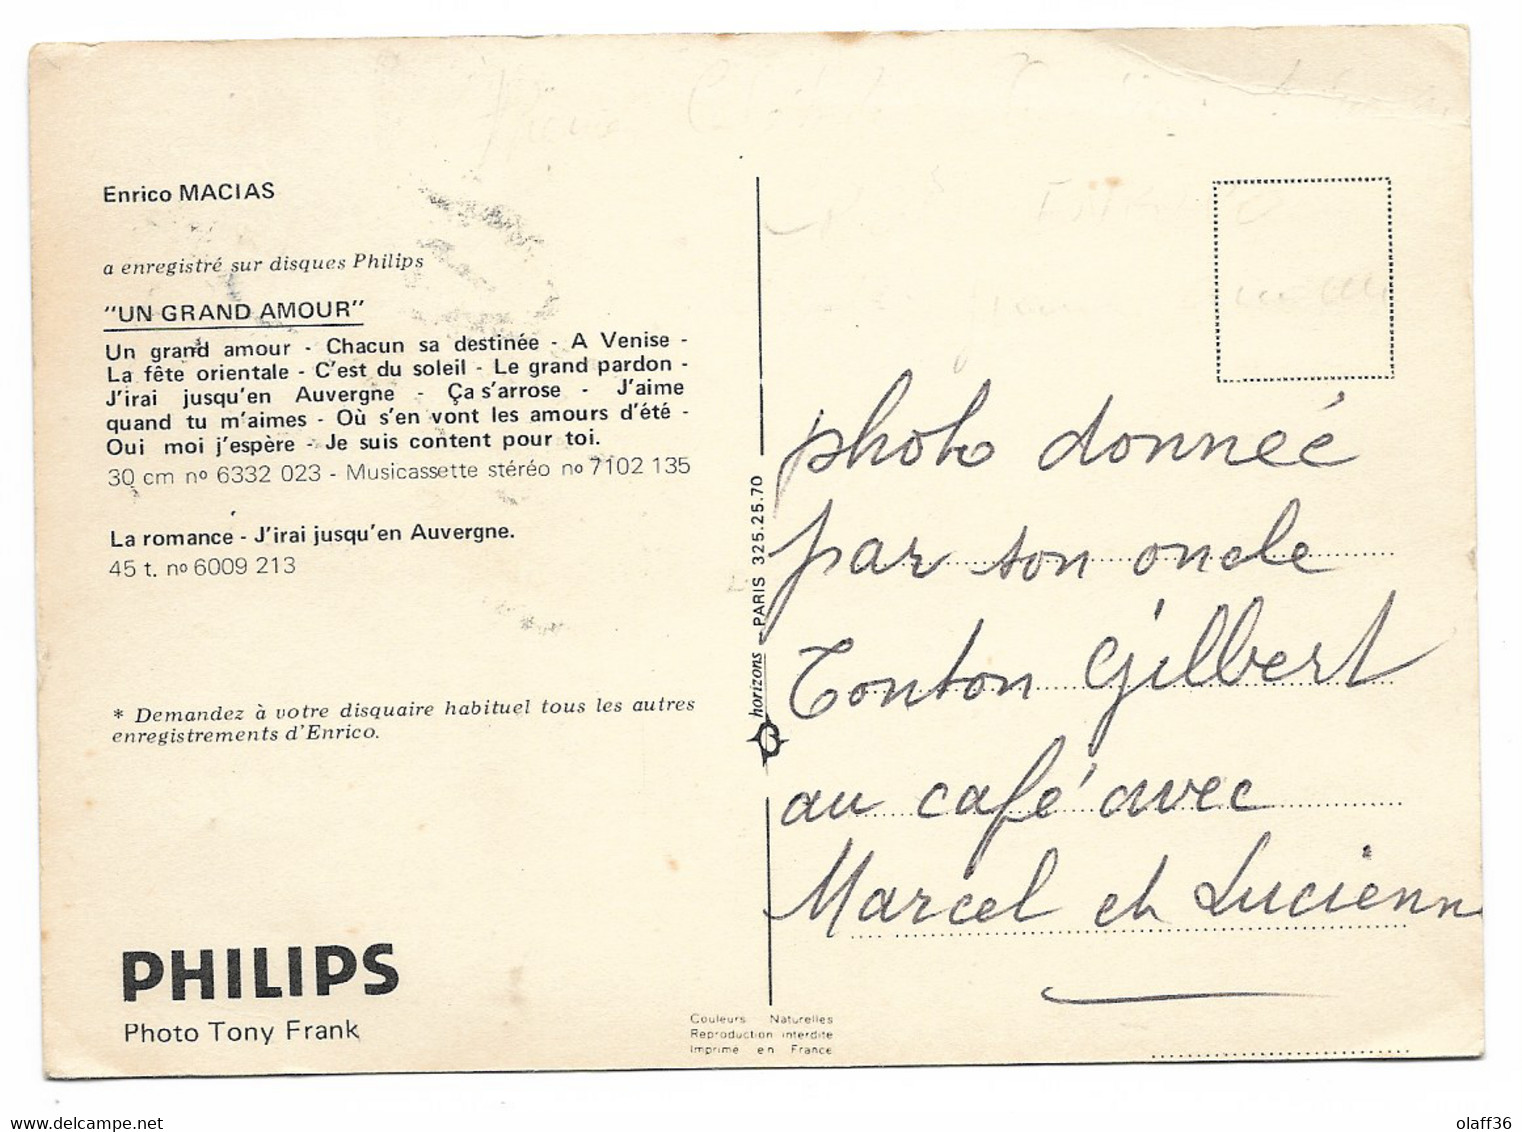 Enrico MACIAS
a enregistré sur disques Philips
"UN GRAND AMOUR"
Un grand amour - Chacun sa destinée - A Venise -
La fête orientale - C'est du soleil - Le grand pardon -
J'irai jusqu'en Auvergne - Ça s'arrose - J'aime
quand tu m'aimes - Où s'en vont les amours d'été -
Oui moi j'espère - Je suis content pour toi.
30 cm no 6332 023 - Musicassette stéréo no 7102 135
La romance - J'irai jusqu'en Auvergne.
45 t. no 6009 213
* Demandez à votre disquaire habituel tous les autres
enregistrements d'Enrico.
PHILIPS
Photo Tony Frank
horizons - PARIS 325.25.70
Couleurs Naturelles
Reproduction interdite
Imprimé en France
photo donnéé
par son oncle
Tonton Gilbert
au café avec
Marcel et Lucienne
olaff36